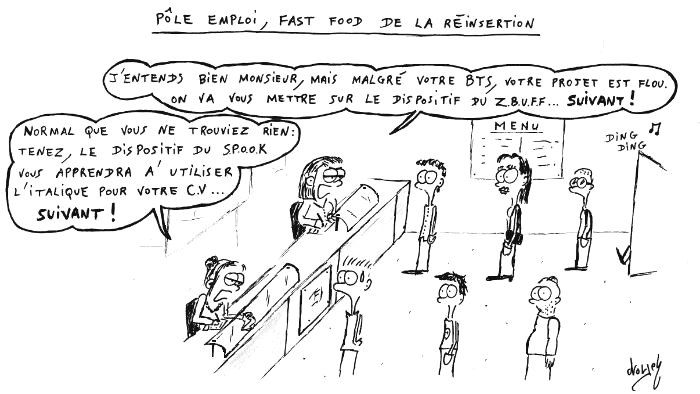 PÔLE EMPLOI, FAST FOOD DE LA RÉINSERTION
J'ENTENDS BIEN MONSIEUR, MAIS MALGRÉ VOTRE BTS, VOTRE PROJET EST FLOU.
ON VA VOUS METTRE SUR LE DISPOSITIF DU Z.B.U.F.F... SUIVANT!
NORMAL QUE VOUS NE TROUVIEZ RIEN:
TENEZ, LE DISPOSITIF DU S.P.O.O.K
VOUS APPRENDRA A' UTILISER
L'ITALIQUE POUR VOTRE C.V...
SUIVANT!
MENU
DING
DING